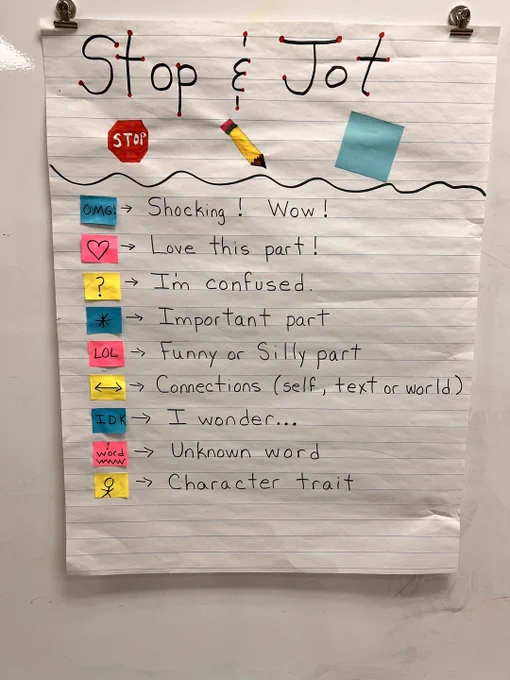 Stop & Jot
STOP
OMG! → Shocking! Wow!
♡ → Love this part!
? → I'm confused.
* → Important part
LOL → Funny or Silly part
↔ → Connections (self, text or world)
IDK → I wonder...
? word → Unknown word
→ Character trait